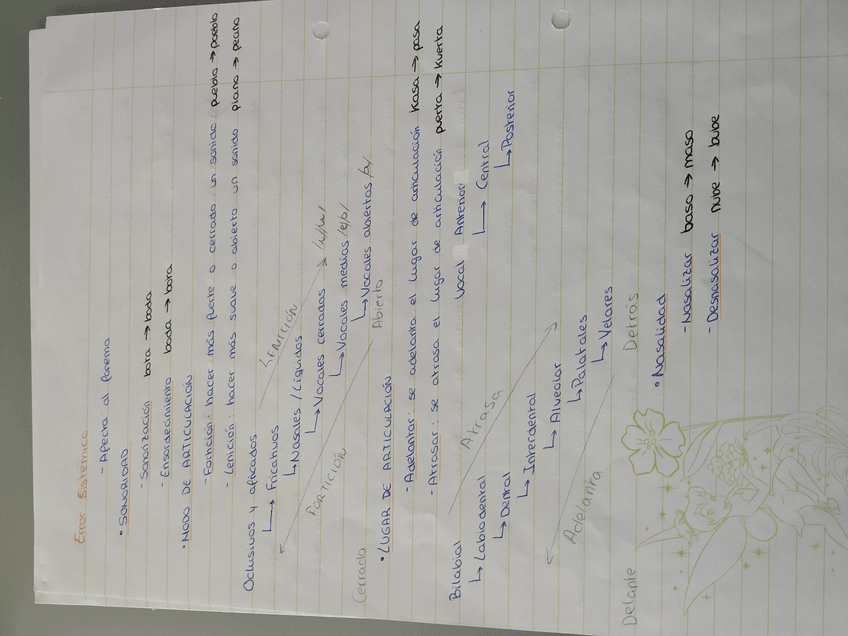 Error Sistémico
- Afecta al fonema
• SONORIDAD
- Sonorización bota → boda
- Ensordecimiento boda → bota
• MODO DE ARTICULACIÓN
- Fortición: hacer más fuerte o cerrado un sonido pueblo → poeblo
- Lenición: hacer más suave o abierto un sonido piano → peano
Oclusivos y africados
↳ Fricativos
↳ Nasales / Líquidos
↳ Vocales cerradas /i/u/
↳ Vocales medias /e/o/
↳ Vocales abiertas /a/
LENICIÓN
FORTICIÓN
Cerrado Abierto
• LUGAR DE ARTICULACIÓN
- Adelantar: se adelanta el lugar de articulación Kasa → pasa
- Atrasar: se atrasa el lugar de articulación puerta → kuerta
Bilabial
↳ Labiodental
↳ Dental
↳ Interdental
↳ Alveolar
↳ Palatales
↳ Velares
Atrasa
Adelanta
Delante Detrás
Vocal Anterior
↳ Central
↳ Posterior
• Nasalidad
- Nasalizar baso → maso
- Desnasalizar nube → bube